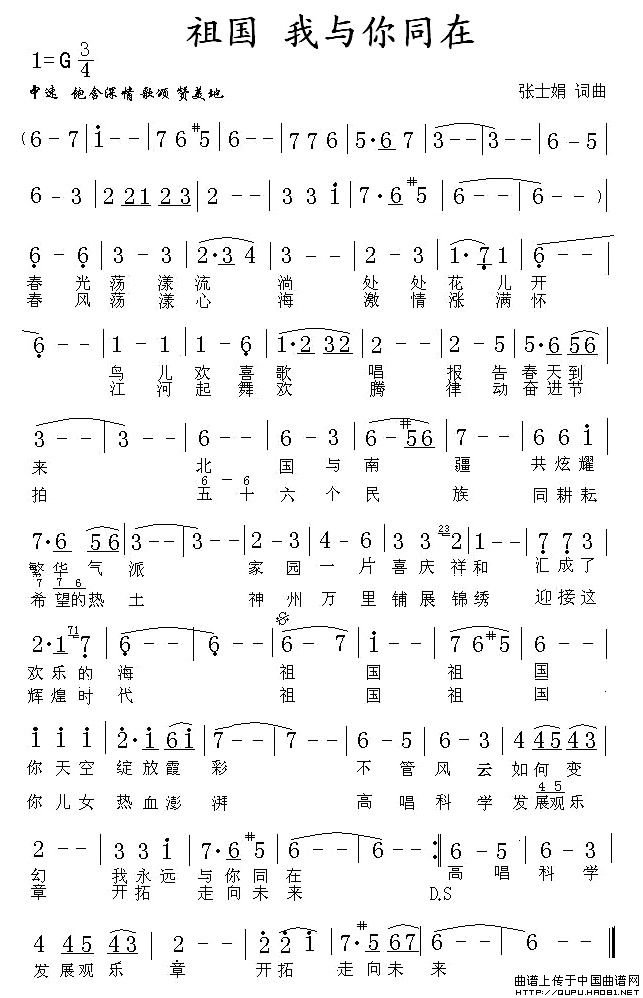 祖国 我与你同在
1=G 3/4
中速 饱含深情 歌颂 赞美地
张士娟 词曲
(6 - 7 | i - - | 7 6 #5 | 6 - - | 7 7 6 | 5· 6 | 3 - - | 3 - - | 6 - 5 |
6 - 3 | 2 21 23 | 2 - - | 3 3 i | 7· 6 #5 | 6 - - | 6 - - ) |
6 - 6 | 3 - 3 | 2· 3 4 | 3 - - | 2 - 3 | 1· 7 1 | 6 - - |
春 光 荡 漾 流 淌 处 处 花 儿 开
春 风 荡 漾 心 海 激 情 涨 满 怀
6 - - | 1 - 1 | 1 - 6 | 1· 2 32 | 2 - - | 2 - 5 | 5· 6 56 |
鸟 儿 欢 喜 歌 唱 报 告 春 天 到
江 河 起 舞 欢 腾 律 动 奋 进 节
3 - - | 3 - - | 6 - - | 6 - 3 | 6 - #56 | 7 - - | 6 6 i |
来 北 国 与 南 疆 共 炫 耀
6 - 6
拍 五 十 六 个 民 族 同 耕 耘
7· 6 56 | 3 - - | 3 - - | 2 - 3 | 4 - 6 | 3 3 23 2 | 1 - - | 7 7 3 |
繁 华 气 派 家 园 一 片 喜 庆 祥 和 汇 成 了
7 7 6
希 望 的 热 土 神 州 万 里 铺 展 锦 绣 迎 接 这
2· 1 71 7 | 6 - - | 6 - - | 6 - 7 | i - - | 7 6 #5 | 6 - - |
欢 乐 的 海 祖 国 祖 国
辉 煌 时 代 祖 国 祖 国
i i i | 2· i 6i | 7 - - | 7 - - | 6 - 5 | 6 - 3 | 4 45 43 |
你 天 空 绽 放 霞 彩 不 管 风 云 如 何 变
4 5
你 儿 女 热 血 澎 湃 高 唱 科 学 发 展 观 乐
2 - - | 3 3 i | 7· 6 #5 | 6 - - | 6 - - :| 6 - 5 | 6 - 3 |
幻 我 永 远 与 你 同 在 高 唱 科 学
章 开 拓 走 向 未 来 D.S
4 45 43 | 2 - - | 3 3 i | 7· #5 67 | 6 - - | 6 - - ‖
发 展 观 乐 章 开 拓 走 向 未 来
曲谱上传于中国曲谱网
HTTP://QUPU.HAO81.NET